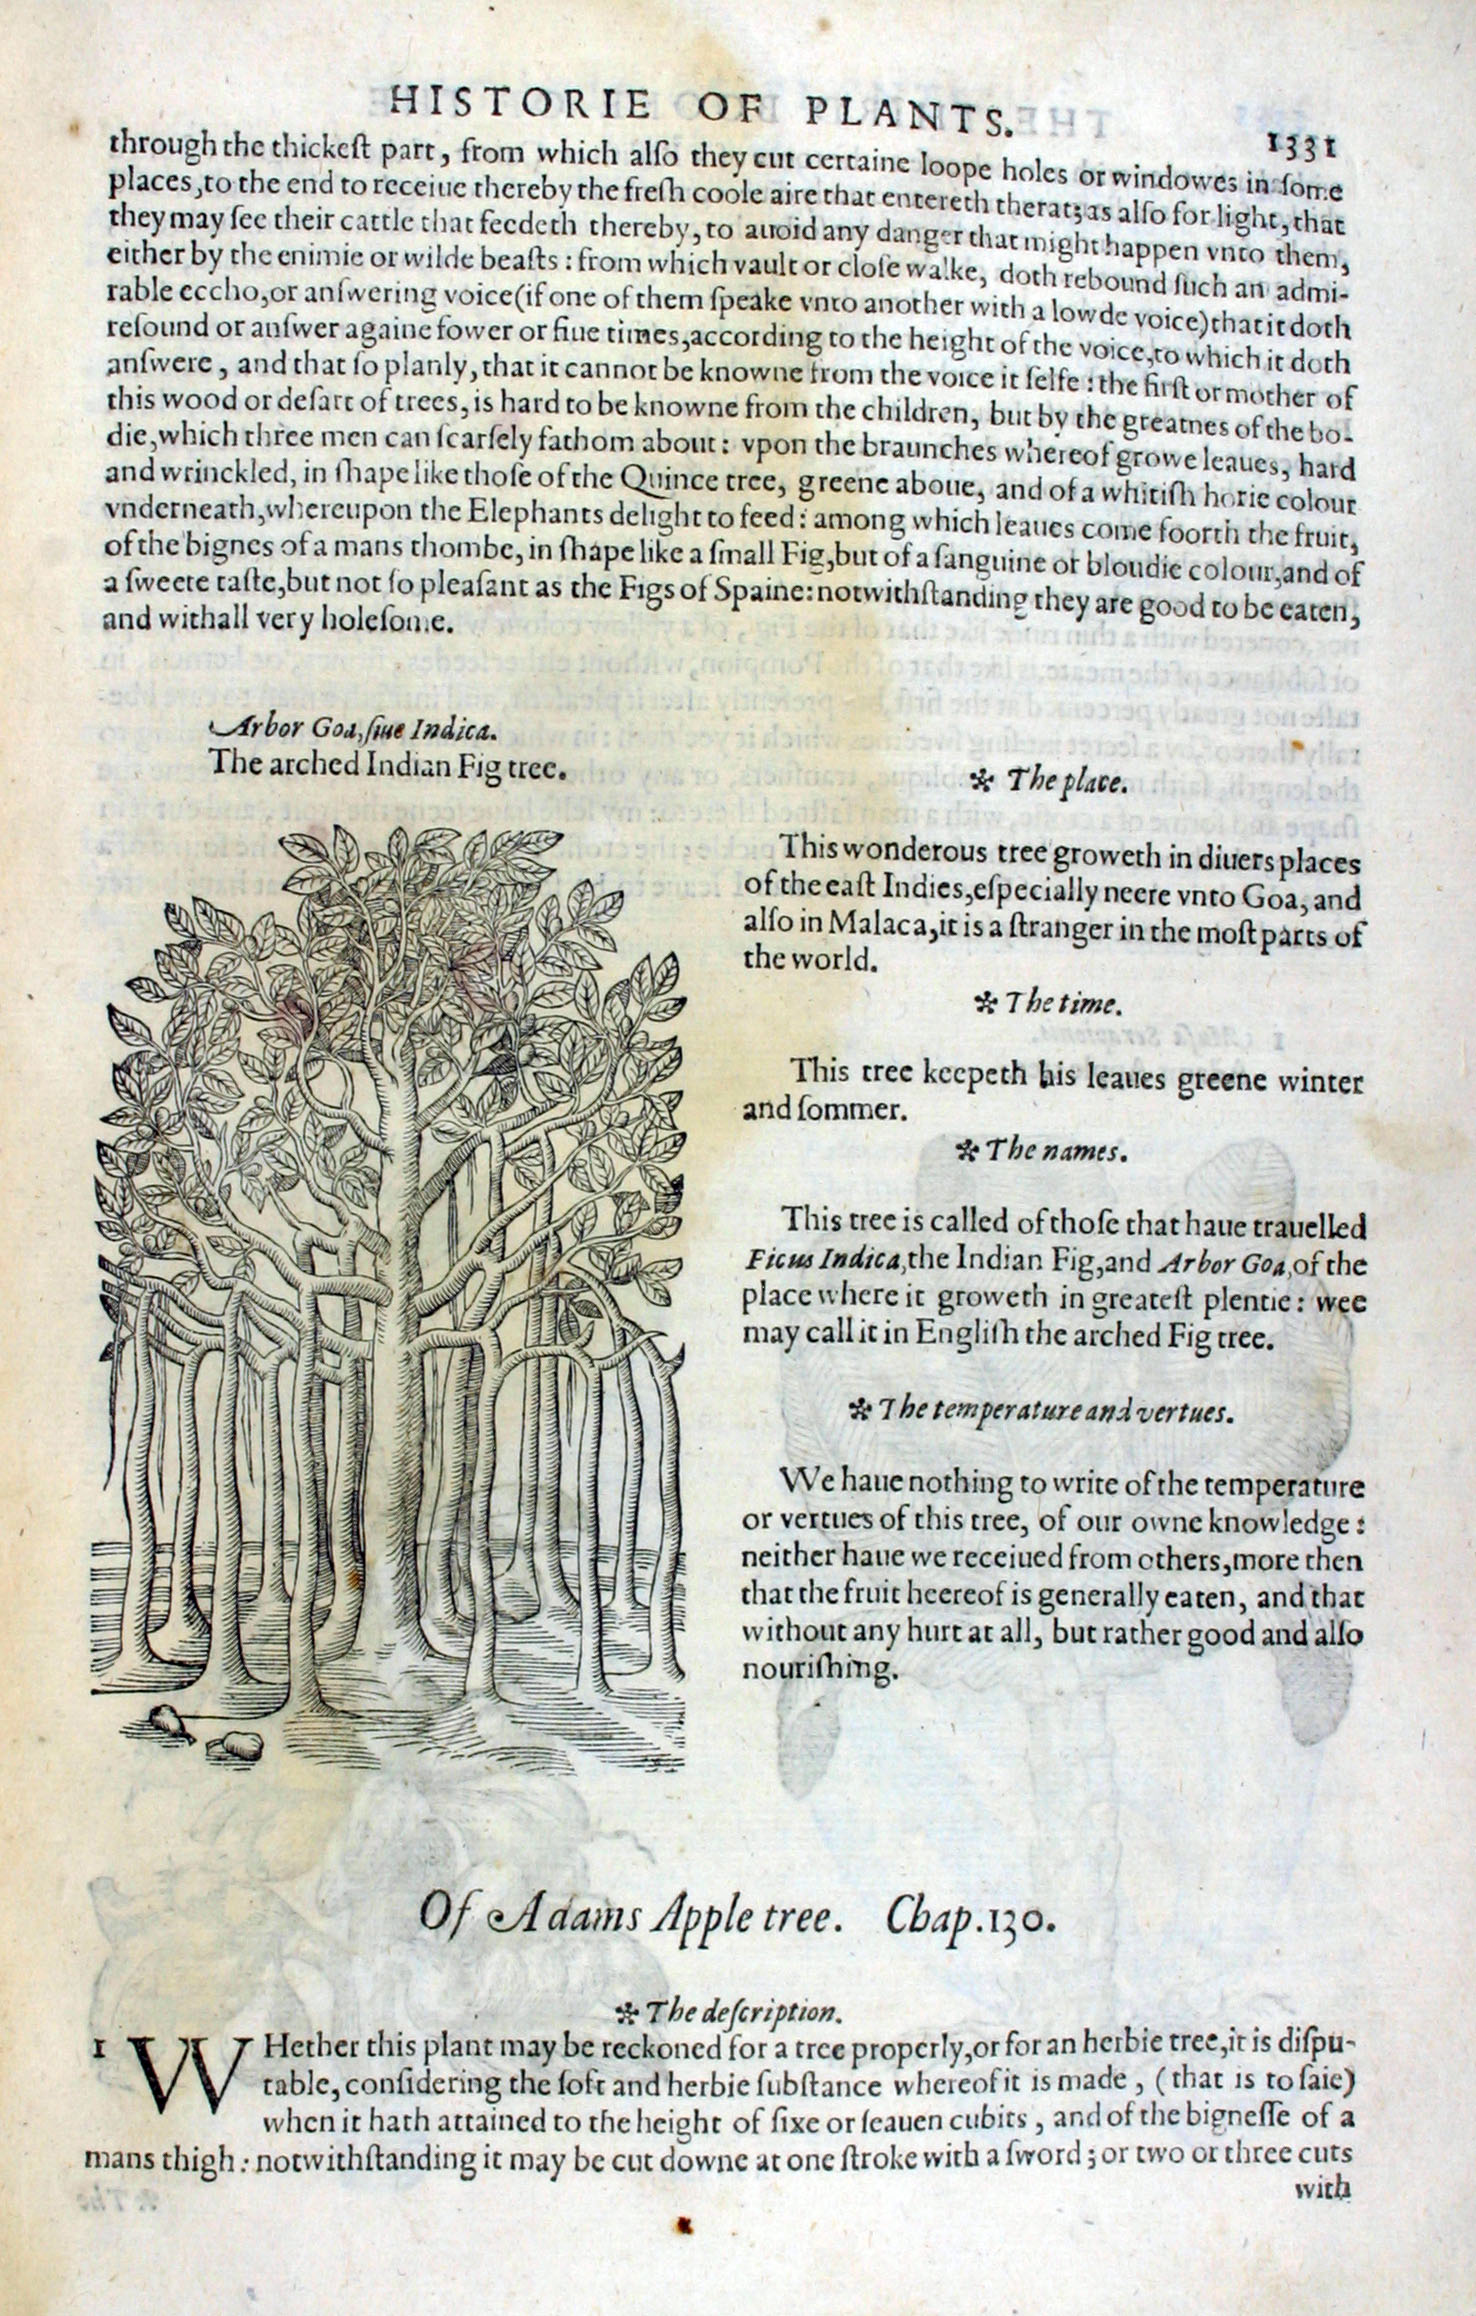 HISTORIE OF PLANTS.
1331
through the thickeſt part, from which alſo they cut certaine loope holes or windowes in ſome
places, to the end to receiue thereby the freſh coole aire that entereth therat; as alſo for light, that
they may ſee their cattle that feedeth thereby, to auoid any danger that might happen vnto them,
either by the enimie or wilde beaſts: from which vault or cloſe walke, doth rebound ſuch an admi-
rable eccho, or anſwering voice (if one of them ſpeake vnto another with a lowde voice) that it doth
reſound or anſwer againe fower or fiue times, according to the height of the voice, to which it doth
anſwere, and that ſo planly, that it cannot be knowne from the voice it ſelfe: the firſt or mother of
this wood or deſart of trees, is hard to be knowne from the children, but by the greatnes of the bo-
die, which three men can ſcarſely fathom about: vpon the braunches whereof growe leaues, hard
and wrinckled, in ſhape like thoſe of the Quince tree, greene aboue, and of a whitiſh horie colour
vnderneath, whereupon the Elephants delight to feed: among which leaues come foorth the fruit,
of the bignes of a mans thombe, in ſhape like a ſmall Fig, but of a ſanguine or bloudie colour, and of
a ſweete taſte, but not ſo pleaſant as the Figs of Spaine: notwithſtanding they are good to be eaten,
and withall very holeſome.
Arbor Goa, ſiue Indica.
The arched Indian Fig tree.
✻ The place.
This wonderous tree groweth in diuers places
of the eaſt Indies, eſpecially neere vnto Goa, and
alſo in Malaca, it is a ſtranger in the moſt parts of
the world.
✻ The time.
This tree keepeth his leaues greene winter
and ſommer.
✻ The names.
This tree is called of thoſe that haue trauelled
Ficus Indica, the Indian Fig, and Arbor Goa, of the
place where it groweth in greateſt plentie: wee
may call it in Engliſh the arched Fig tree.
✻ The temperature and vertues.
We haue nothing to write of the temperature
or vertues of this tree, of our owne knowledge:
neither haue we receiued from others, more then
that the fruit heereof is generally eaten, and that
without any hurt at all, but rather good and alſo
nouriſhing.
Of Adams Apple tree. Chap. 130.
✻ The deſcription.
1 WHether this plant may be reckoned for a tree properly, or for an herbie tree, it is diſpu-
table, conſidering the ſoft and herbie ſubſtance whereof it is made, (that is to ſaie)
when it hath attained to the height of ſixe or ſeauen cubits, and of the bigneſſe of a
mans thigh: notwithſtanding it may be cut downe at one ſtroke with a ſword; or two or three cuts
with